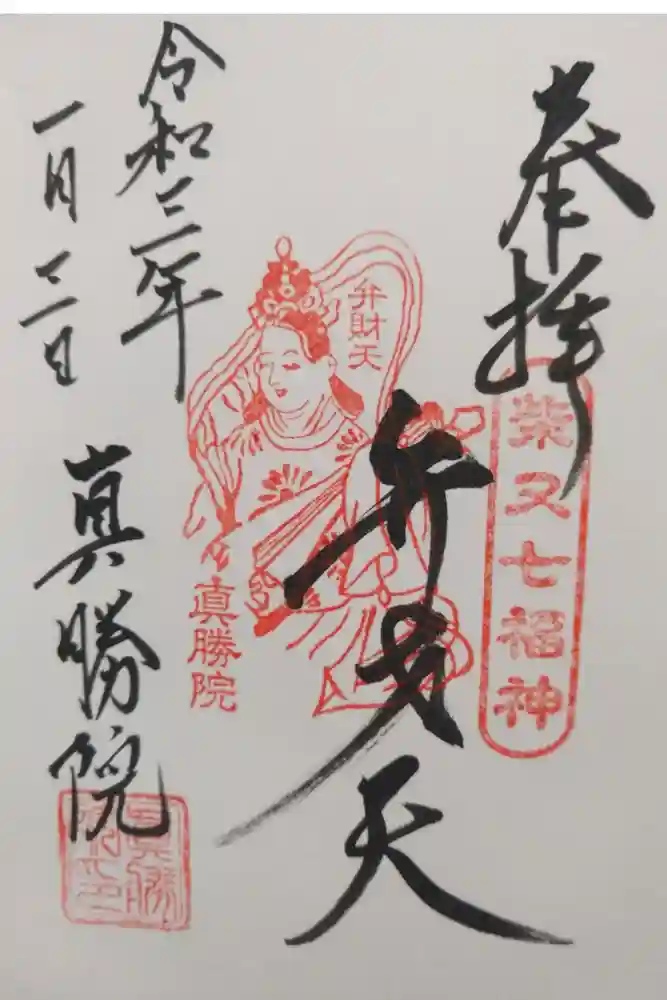 奉拝
柴又七福神
弁才天
弁財天
真勝院
令和三年
一月三日
真勝院
真勝
院印